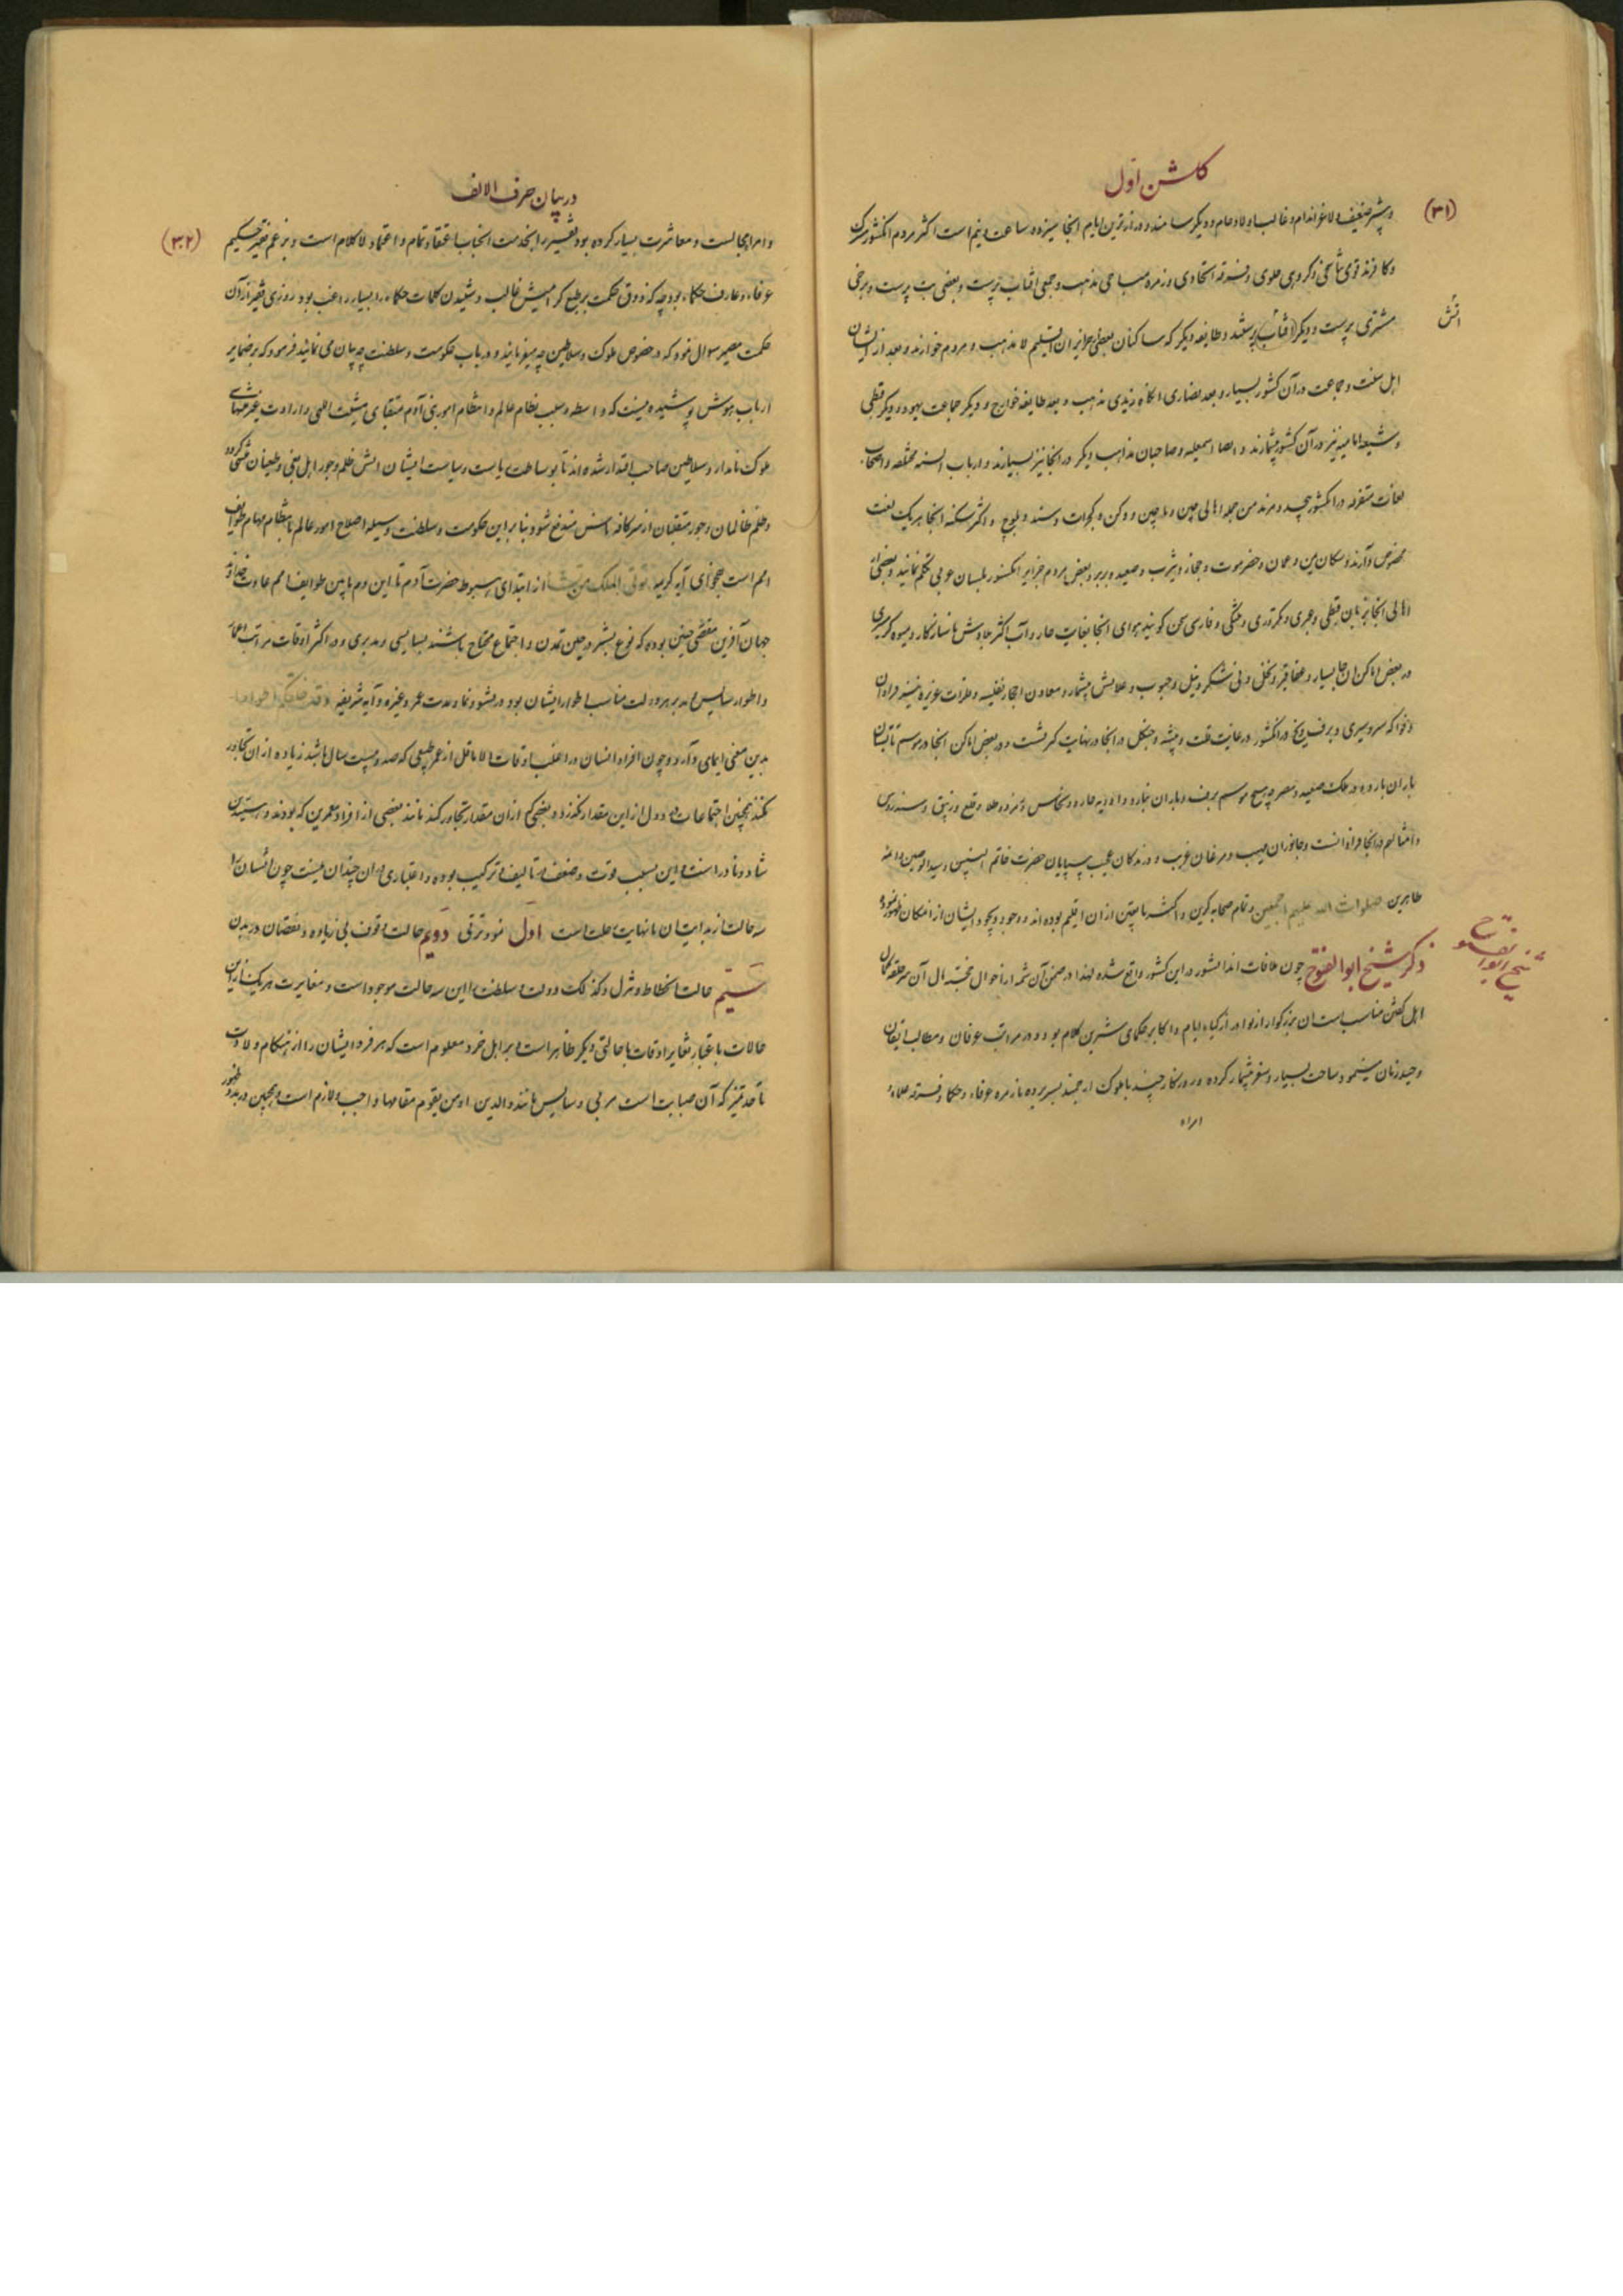 کلشن اول
(۳۱)
و بشیر ضعیف و لاغر اندام و غالب اولاد حام و دیگر سا مند و درازترین ایام انجا سیزده ساعت و نیم است اکثر مردم انکشور مشرک
و کافرند قومی شافعی و کروهی علوی و فرقه اتحادی و زمره مباحی مذهب و جمعی افتاب پرست و بعضی بت پرست و برخی
اتش
مشتری پرست و دیگر افتاب پرستند و طایفه دیگر که ساکنان بعضی جزایر ان اقلیم لا مذهب و مردم خوارند و بعد از ایشان
اهل سنت و جماعت در آن کشور بسیار و بعد نصاری انکاه زیدی مذهب و بعد طایفه خوارج و دیگر جماعت یهود و دیگر قبطی
و شیعه امامیه نیز در آن کشور بیشمارند و ایضا اسمعیلیه و صاحبان مذاهب دیگر در انجا نیز بسیارند و ارباب السنه مختلفه و اصحاب
لغات متفرقه در انکشور بیحد و مرند من جمله اهالی چین و ماچین و دکن و کجرات و سند و بلوچ و اکثر سکنه انجا هر یک لغت
مخصوص دارند و سکان یمن و عمان و حضرموت و حجاز و یثرب و صعید و بربر و بعض مردم جزایر انکشور بلسان عربی تکلم نمایند و بعضی از
اهالی انجا بزبان قبطی و عبری و مکرتوری و و فارسی سخن کویند هوای انجا بغایت حار و آب اکثر بلادش ناسازکار و میوه کرمسیری
در بعض اماکن ان جا بسیار و عقاقیر و نخل و نی شکر و نیل و حبوب و غلایش بیشمار و معادن احجار نفیسه و فلزات عزیزه نیز فراوان
و فواکه سردسیری و برف و یخ در انکشور در غایت قلت و چشه و جنکل در انجا در نهایت کثرتست و در بعض اماکن انجا در موسم تابستان
باران بارد و در ملک صعید و مصر در هیچ موسم برف و باران نبارد و ادویه حاره و نحاس و زمرد و طلا و قلع و زیبق و سندروس
و امثالهم در انجا فراوانست و جانوران مهیب و مرغان غریب و درندکان عجیب بیپایان حضرت خاتم النبیین و سید الوصیین و ائمه
طاهرین صلوات الله علیهم اجمعین و تمام صحابه کرین و اکثر تابعین از ان اقلیم بوده اند و وجود ذیجود ایشان از انمکان ظهور نموده
شیخ ابوالفتوح
ذکر شیخ ابوالفتوح چون ملاقات اندانشور در این کشور واقع شده لهذا در ضمن آن شمه از احوال خجسته مال آن سرحلقه کملان
اهل کلشن مناسب است ان بزرکوار از نوادر ازکیاء ایام و اکابر حکمای شیرین کلام بود و در مراتب عرفان و مطالب ایقان
وحید زمان مینمود و سیاحت بسیار و سفر بیشمار کرده و روزکار چند با ملوک ارجمند بسر برده با زمره عرفاء و حکما و فرقه علماء
امراء
در بیان حرف الالف
(۳۲)
و امرا مجالست و معاشرت بسیار کرده بود فقیر را بخدمت انجناب اعتقاد تمام و اعتماد لا کلام است و بزعم فقیر حکیم
عرفاء و عارف حکماء بود چه که ذوق حکمت بر طبع کرامیش غالب و شنیدن کلمات حکما را بسیار راغب بود روزی فقیر از آن
حکمت مصیر سوال نمود که در خصوص ملوک و سلاطین چه میفرمایند و در باب حکومت و سلطنت چه بیان می نمائید فرمود که بر ضمایر
ارباب هوش پوشیده نیست که واسطه و سبب نظام عالم و انتظام امور بنی آدم مقتضای مشیت الهی و ارادت غیر متناهی
ملوک نامدار و سلاطین صاحب اقتدار شده اند تا بوساطت یاست و سیاست ایشان اتش ظلم و جور اهل بغی و طغیان منتفی کردد
و ظلم ظالمان و جور متقلبان از سر کافه ناس مندفع شود بنا بر این حکومت و سلطنت وسیله اصلاح امور عالم و انتظام مهام طوایف
امم است بفحوای آیه کریمه تؤتی الملک من تشاء از ابتدای هبوط حضرت آدم تا این دم ما بین طوایف امم عادت خداوند
جهان آفرین مقتضی چنین بوده که نوع بشر در حین تمدن و اجتماع محتاج باشند بسایسی و مدبری و در اکثر اوقات مراتب اعمار
و اطوار سایس و مدبر هر دولت مناسب اطوار ایشان بود در نشو و نما و مدت عمر و غیره و آیه شریفه و قد خلقکم اطوارا
بدین معنی ایمای دارد و چون افراد انسان در اغلب اوقات الا ماقل از عمر طبیعی که صد و بیست سال باشد زیاده از ان تجاوز
نکند همچنین اجتماعات و دول از این مقدار نکذرد و بعضی کم از ان مقدار تجاوز کند مانند بعضی از افراد معمرین که بودند و هستند
شاذ و نادر است و این بسبب قوت و ضعف در تالیف و ترکیب بوده و اعتباری بر ان چندان نیست چون انسان را
سه حالت از بدایت ان تا نهایت اجلست است اول نمو و ترقی دویم حالت وقوف بی زیاده و نقصان در بدن
سیم حالت انحطاط و تنزل و کذلک دولت و سلطنت را این سه حالت موجود است و مغایرت هر یک از این
حالات باعتبار تغایر اوقات با حالتی دیکر ظاهر است و بر اهل خرد معلوم است که هر فرد ایشان را از هنکام ولادت
تا حد تمیز که آن صبابت است مربی و سایس مانند والدین او من یقوم مقامها واجب و لازم است و همچنین در بدو ظهور